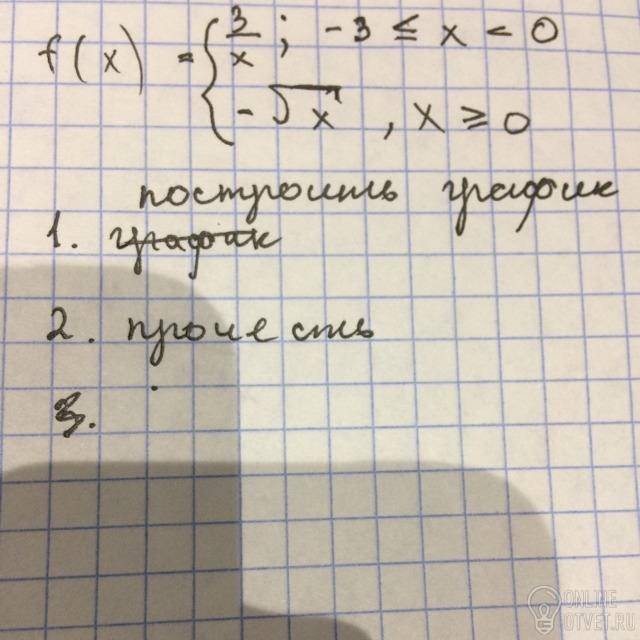 f(x) = { 3/x ; -3 ≤ x < 0
-√x , x ≥ 0
построить график
1. график
2. прочесть
3.
ONLINE
OTVET.RU